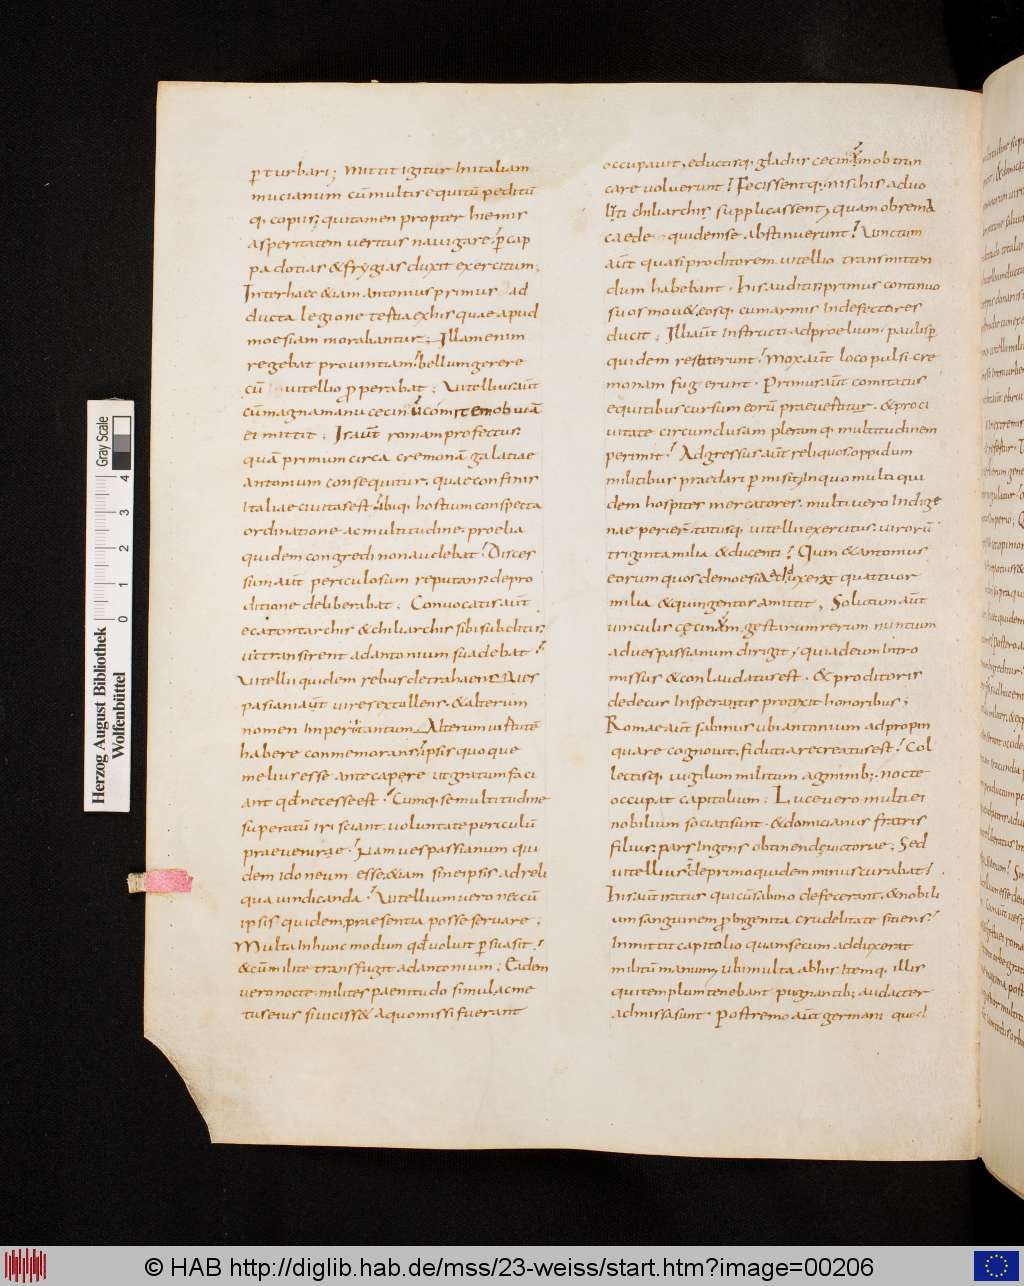 pturbari; Mittit igitur Initaliam
mucianum cūmultis equitū peditū
q; copiis; quitamen propter hiemis
asperitatem veritus navigare. p cap
padotias &frygias duxit exercitum;
Interhaec &iam antonius primus ad
ducta legione tertia exhis quae apud
moesiam morabantur; Illam enim
regebat provintiam. bellumgerere
cū vitellio properabat; Vitellius aūt
cūmagnamanu cecinā comitem obviā
ei mittit; Is aūt roma profectus
quā primum circa cremonā galatiae
antonium consequitur, quae confinis
Italiae civitas est. ibiq; hostium conspecta
ordinatione ac multitudine. proelia
quidem congredi non audebat. Disces
sum aūt periculosum reputans depro
ditione deliberabat; Convocatis aūt
ecatontarchis &chiliarchis sibi subditis
ut transirent ad antonium suadebat
Vitellii quidem rebus detrahens Ves
pasiani aūt vires extollens. &alterum
nomen Imperii tantum. Alterum virtutē
habere conmemorans. ipsis quoque
melius esse ante capere ut gratum faci
ant qd necesse est. Cumq; se multitudine
superatū iri sciant. voluntate periculū
praevenire. Nam vespassianum qui
dem idoneum esse. &iam sine ipsis ad reli
qua vindicanda. Vitellium vero nec cū
ipsis quidem praesentia posse servare;
Multa Inhunc modum qd voluit p suasit.
&cū milite transfugit ad antonium; Eadem
vero nocte. milites paenitudo simul. ac me
tus eius si vicisset a quo missi fuerant
occupavit. eductisq; gladiis cecinam obtrun
care voluerunt. Fecissentq; nisi his advo
luti chiliarchis supplicassent, quam obrem a
caede quidem se abstinuerunt. Vinctum
aūt quasi proditorem vitellio transmitten
dum habebant. His auditis primus continuo
suos mov& eosq; cum armis In defectores
ducit; Illi aūt Instructi ad proelium. paulisp
quidem restiterunt. Mox aūt loco pulsi. cre
monam fugerunt. Primus aūt comitatus
equitibus cursum eorū praevertitur. &pro ci
vitate circumclusam pleramq; multitudinem
perimit. Adgressus aūt reliquos. oppidum
militibus praedari p misit, Inquo multi qui
dem hospites mercatores. multi vero Indige
nae perier. totusq; vitellii exercitus. virorū
triginta milia &ducenti. Quin &antonius
eorum quos de moesia adduxerat quattuor
milia &quingentos amittit, Solutum aūt
vinculis cecinam, gestarum rerum nuntium
ad vespassianum dirigit, qui ad eum Intro
missus &conlaudatus est. &proditoris
dedecus Insperatis protexit honoribus;
Romae aūt sabinus ubi antonium ad propin
quare cognovit, fidutia recreatus est. Col
lectisq; vigilum militum agminib; nocte
occupat capitolium; Luce vero multi ei
nobilium sociati sunt. &domicianus fratris
filius pars Ingens obtinende victoriae; Sed
vitellius de primo quidem minus curabat.
His aūt iratus qui cū sabino defecerant, &nobili
um sanguinem pro Ingenita crudelitate sitiens.
Inmittit capitolio quam secum adduxerat
militū manum, ubi multa ab his. Itemq. illis
qui templum tenebant pugnantib; audacter
admissa sunt. Postremo aūt germani quod
Herzog August Bibliothek
Wolfenbüttel
0 1 2 3 4
Gray Scale
© HAB http://diglib.hab.de/mss/23-weiss/start.htm?image=00206